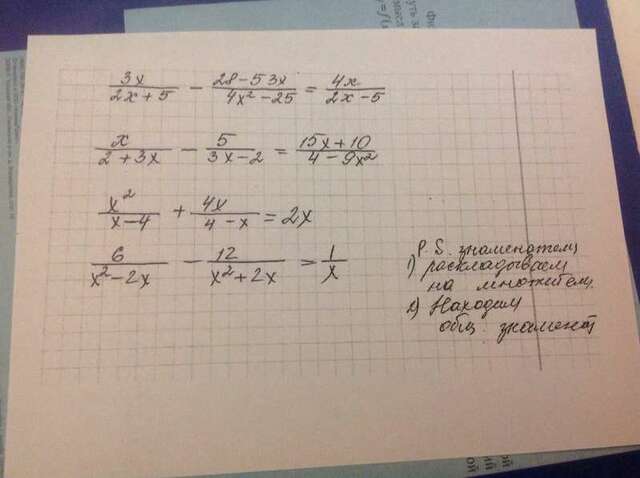 3x/(2x+5) - (28-53x)/(4x²-25) = 4x/(2x-5)
x/(2+3x) - 5/(3x-2) = (15x+10)/(4-9x²)
x²/(x-4) + 4x/(4-x) = 2x
6/(x²-2x) - 12/(x²+2x) = 1/x
P.S. знаменатель
1) раскладываем
на множители
2) Находим
общ. знамент